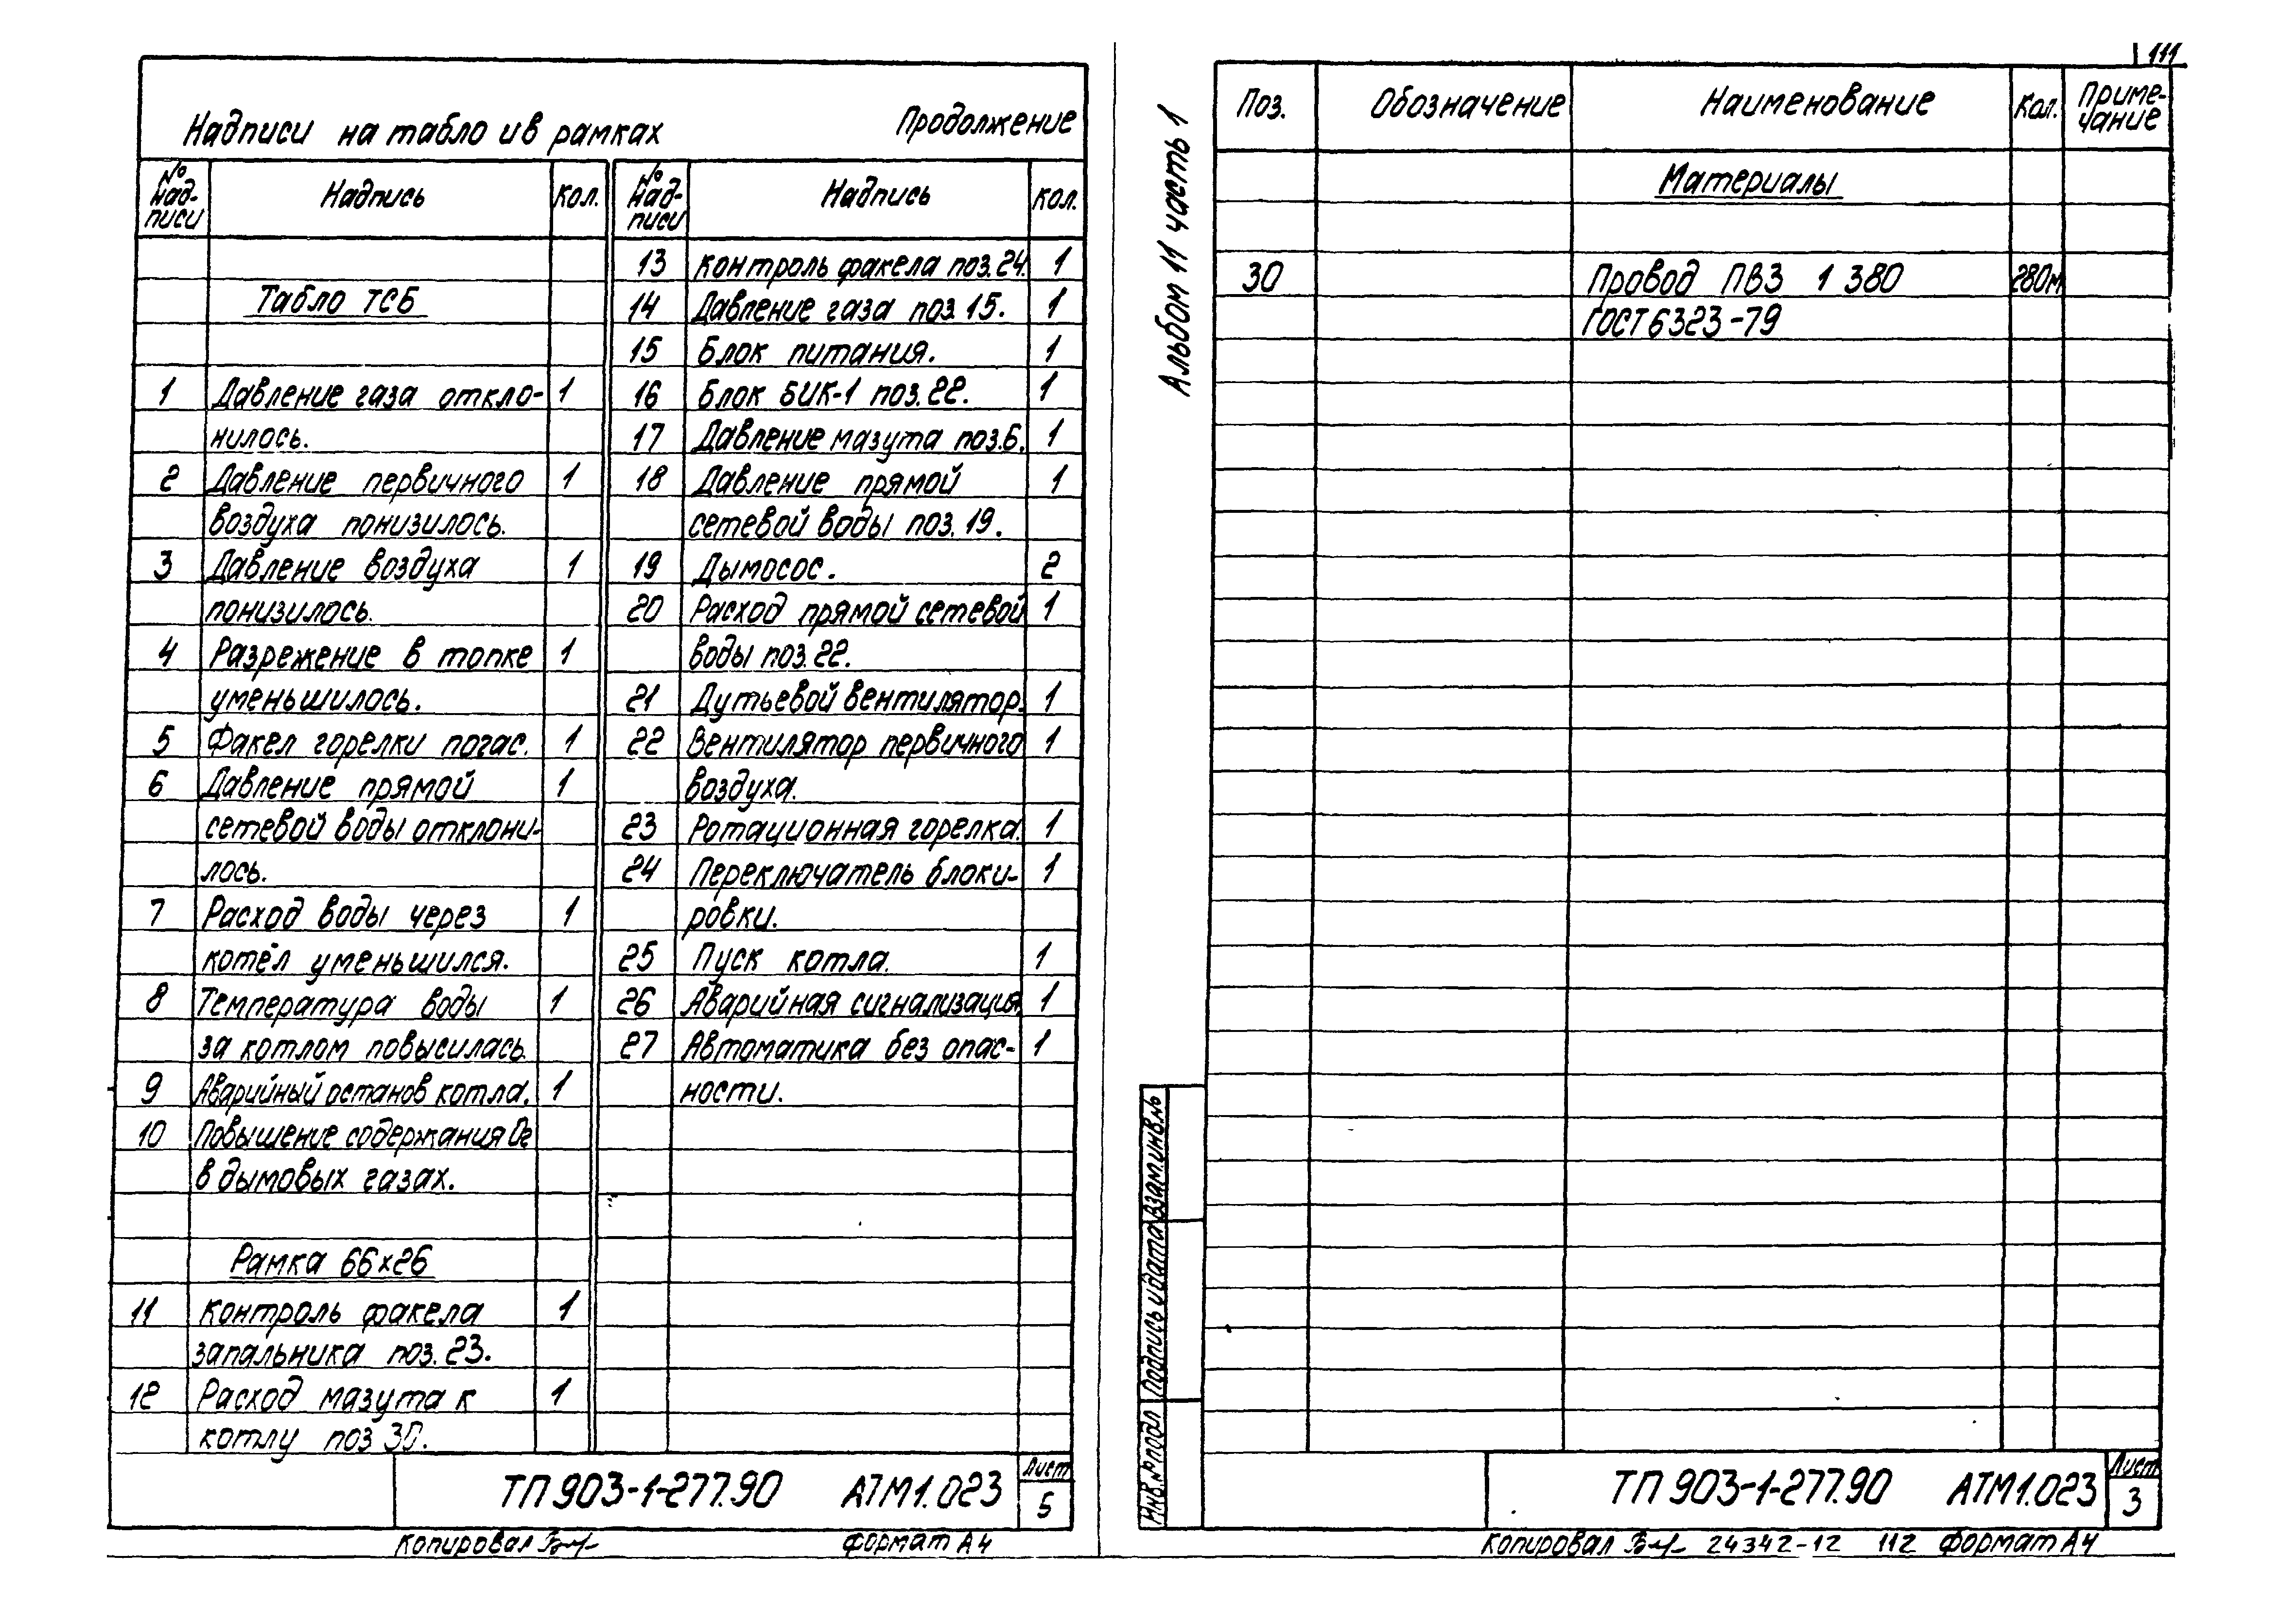 Надписи на табло и в рамках
Продолжение
№ над-писи Надпись Кол.
Табло ТСБ
1 Давление газа откло- 1
нилось.
2 Давление первичного 1
воздуха понизилось.
3 Давление воздуха 1
понизилось.
4 Разрежение в топке 1
уменьшилось.
5 Факел горелки погас. 1
6 Давление прямой 1
сетевой воды отклони-
лось.
7 Расход воды через 1
котёл уменьшился.
8 Температура воды 1
за котлом повысилась
9 Аварийный останов котла. 1
10 Повышение содержания О2
в дымовых газах.
Рамка 66х26
11 Контроль факела 1
запальника поз. 23.
12 Расход мазута к 1
котлу поз 30.
№ над-писи Надпись Кол.
13 Контроль факела поз. 24. 1
14 Давление газа поз. 15. 1
15 Блок питания. 1
16 Блок БИК-1 поз. 22. 1
17 Давление мазута поз.6. 1
18 Давление прямой 1
сетевой воды поз. 19.
19 Дымосос. 2
20 Расход прямой сетевой 1
воды поз. 22.
21 Дутьевой вентилятор. 1
22 Вентилятор первичного 1
воздуха.
23 Ротационная горелка. 1
24 Переключатель блоки- 1
ровки.
25 Пуск котла. 1
26 Аварийная сигнализация. 1
27 Автоматика без опас- 1
ности.
ТП 903-1-277.90 АТМ1.023
Лист
5
Копировал
формат А4
111
Альбом 11 часть 1
Поз. Обозначение Наименование Кол. Приме-
чание
Материалы
30 Провод ПВ3 1 380 280м
ГОСТ 6323-79
Взам.инв.№
Подпись и дата
Инв.№подл
ТП 903-1-277.90 АТМ1.023
Лист
3
Копировал 24342-12 112 формат А4